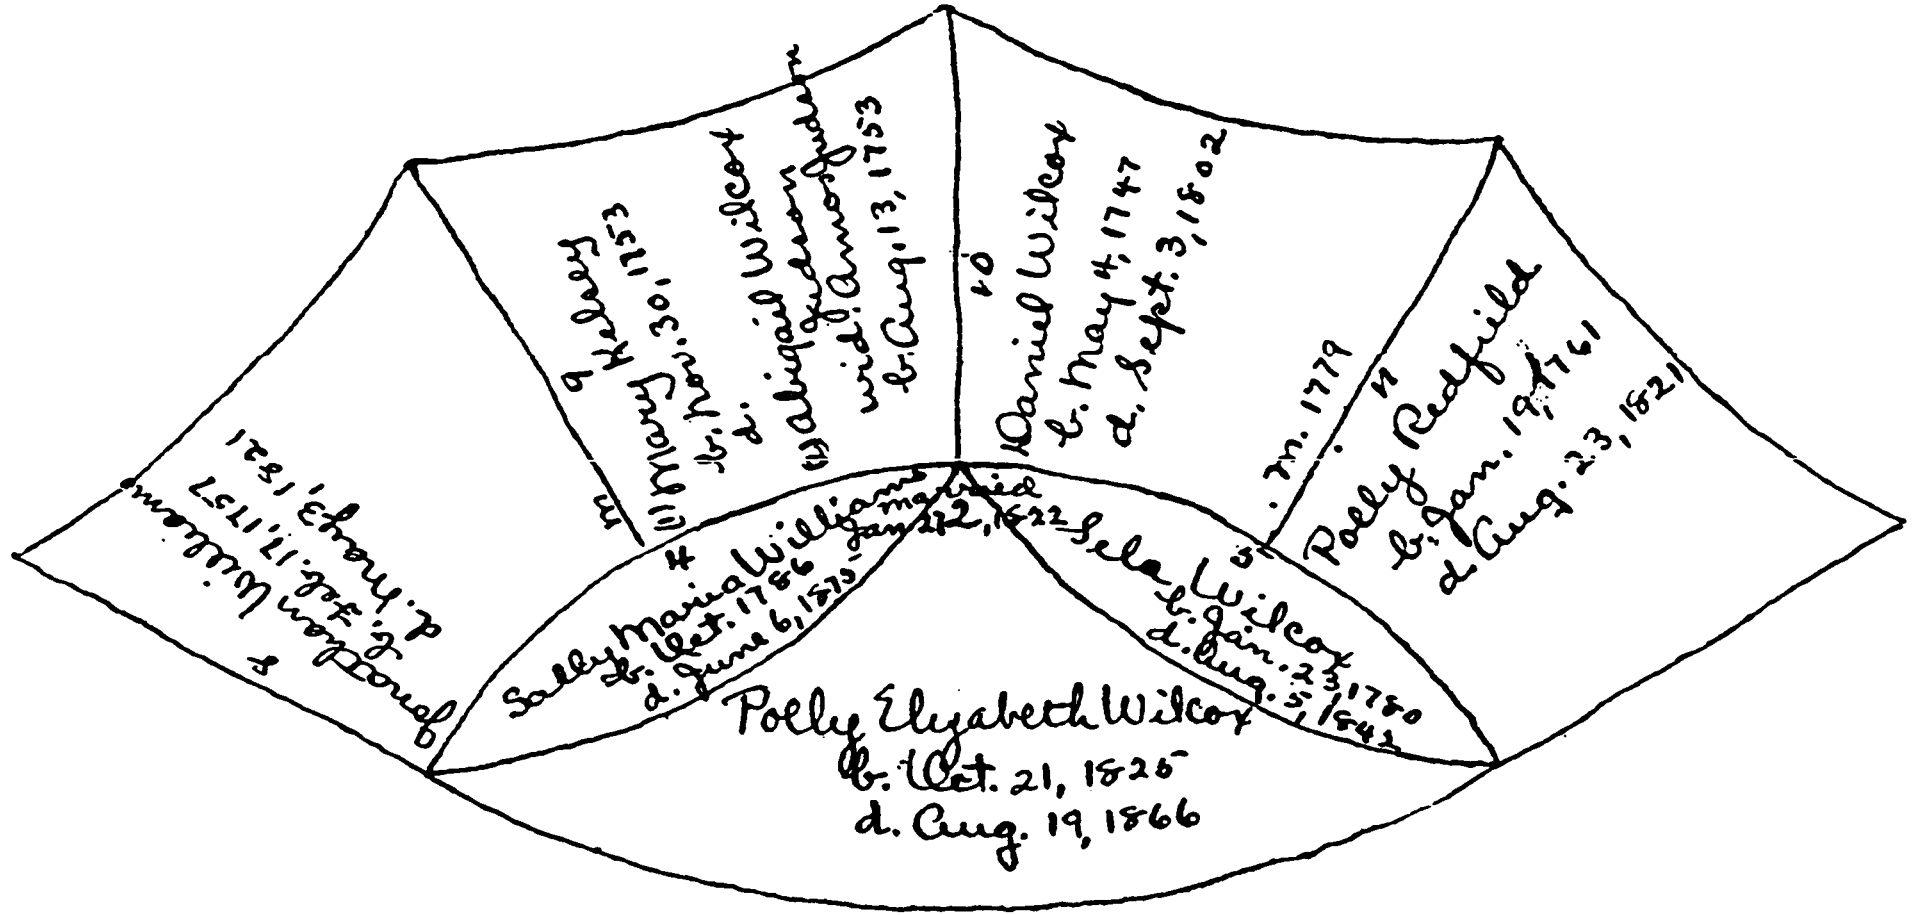 8
Jonathan Williams
b. Feb. 17, 1757
d. May 3, 1821
m
9
(1) Mary Kelsey
b. Nov. 30, 1753
d.
(2) Abigail Wilcox
Judson
wid. Amos Judson
b. Aug. 13, 1753
10
Daniel Wilcox
b. May 4, 1747
d. Sept. 3, 1802
m. 1779
11
Polly Redfield
b. Jan. 19, 1761
d. Aug. 23, 1821
4
Sally Maria Williams
b. Oct. 1786
d. June 6, 1875
married
Jan 22, 1822
5
Sela Wilcox
b. Jan. 23, 1780
d. Aug. 5, 1842
2
Polly Elizabeth Wilcox
b. Oct. 21, 1825
d. Aug. 19, 1866